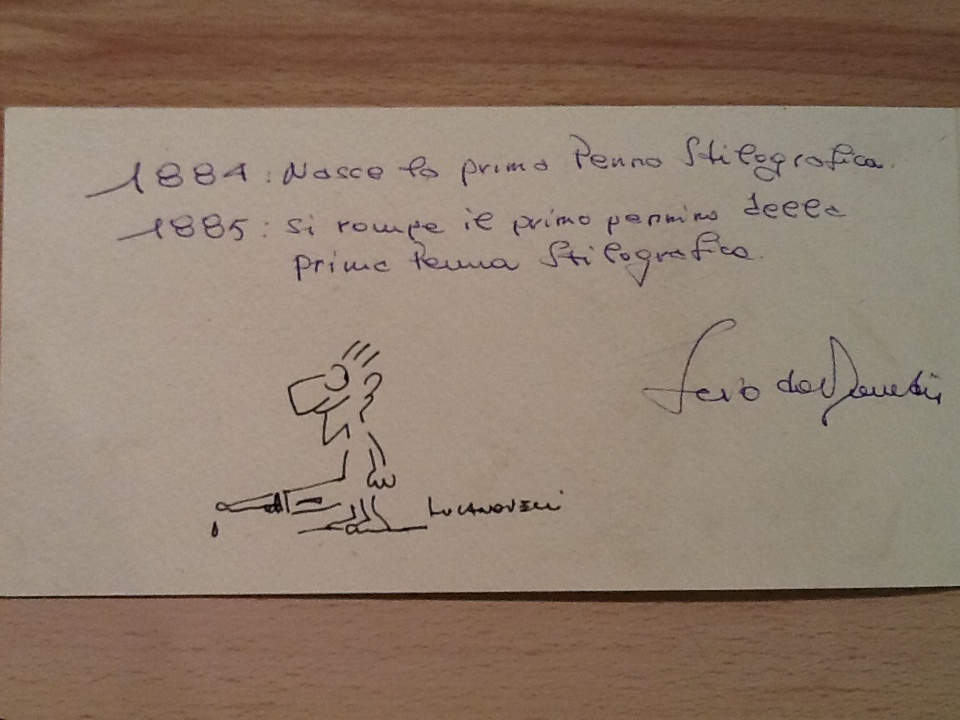 1884: Nasce la prima Penna Stilografica.
1885: si rompe il primo pennino della
prima Penna Stilografica.
LUCANOVELLI